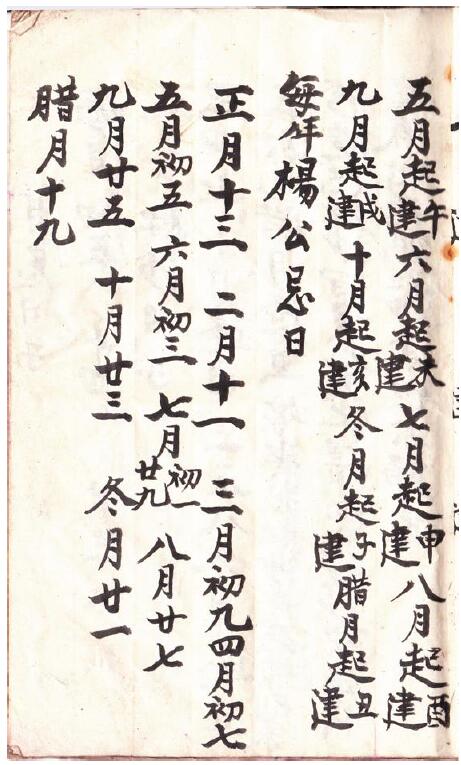 五月起午建六月起未建七月起申建八月起酉建
九月起戌建十月起亥建冬月起子建腊月起丑建
每年楊公忌日
正月十三 二月十一 三月初九四月初七
五月初五 六月初三 七月初一廿九 八月廿七
九月廿五 十月廿三 冬月廿一
腊月十九